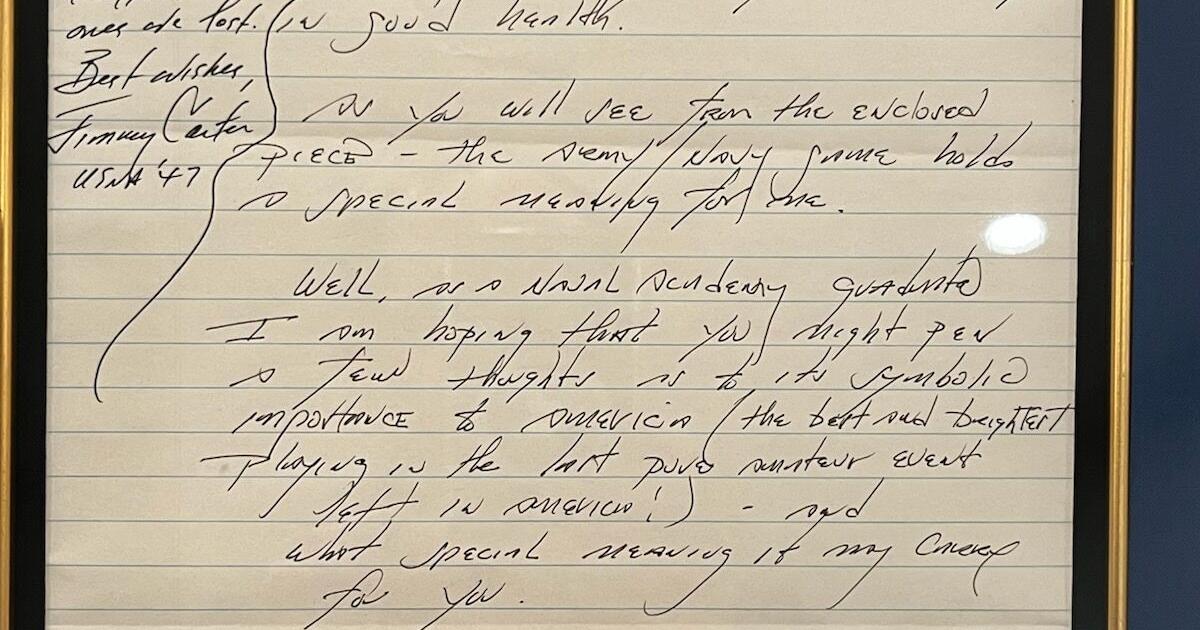 ones are lost.
Best wishes,
Jimmy Carter
USNA '47
in good health.
As you will see from the enclosed
piece - the Army/Navy game holds
a special meaning for me.
Well, as a Naval Academy graduate
I am hoping that you might pen
a few thoughts as to its symbolic
importance to America (the best and brightest
playing in the last pure amateur event
left in America!) - and
what special meaning it may carry
for you.